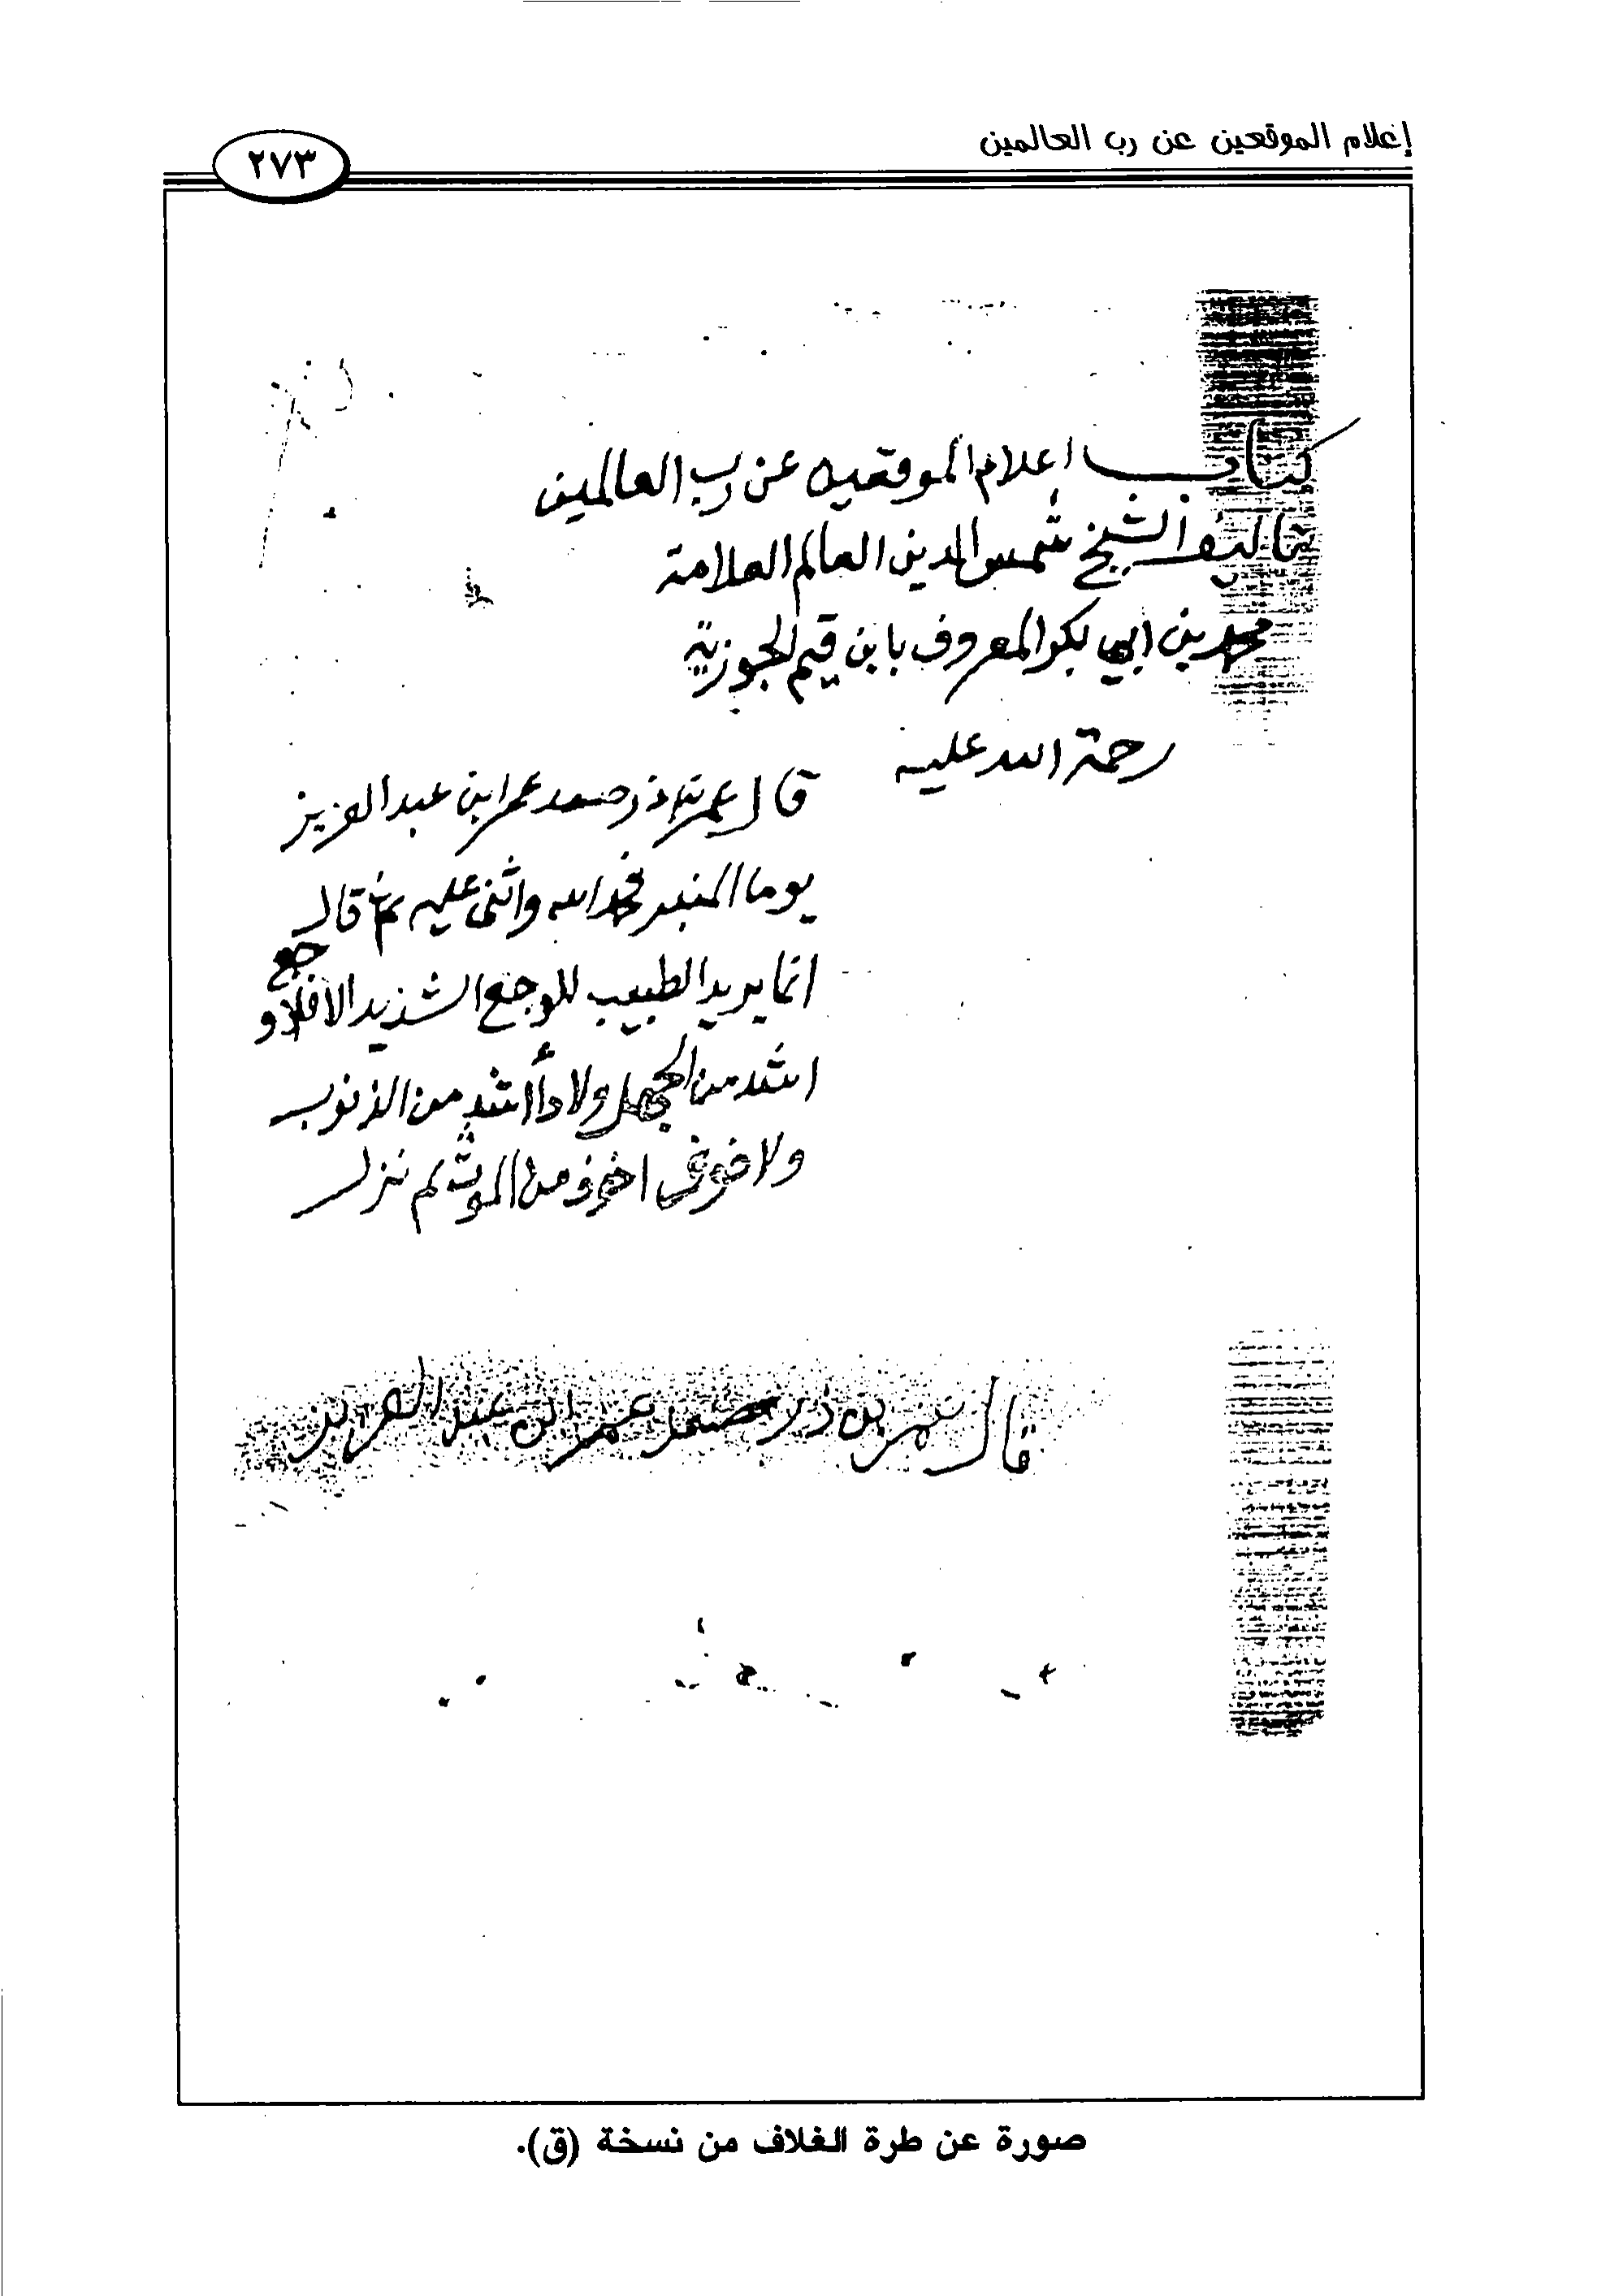 إعلام الموقعين عن رب العالمين
٢٧٣
كتاب اعلام الموقعين عن رب العالمين
تاليف الشيخ شمس الدين العالم العلامة
محمد بن ابي بكر المعروف بابن قيم الجوزية
رحمة الله عليه
قال عمر بن ذر صعد عمر ابن عبد العزيز
يوما المنبر فحمد الله واثنى عليه ثم قال
انما يريد الطبيب للوجع الشديد الا فلا وجع
اشد من الجهل ولا دأ اشد من الذنوب
ولا خوف اخوف من الموت ثم نزل
قال عمر بن ذر صعد عمر ابن عبد العزيز
صورة عن طرة الغلاف من نسخة (ق).